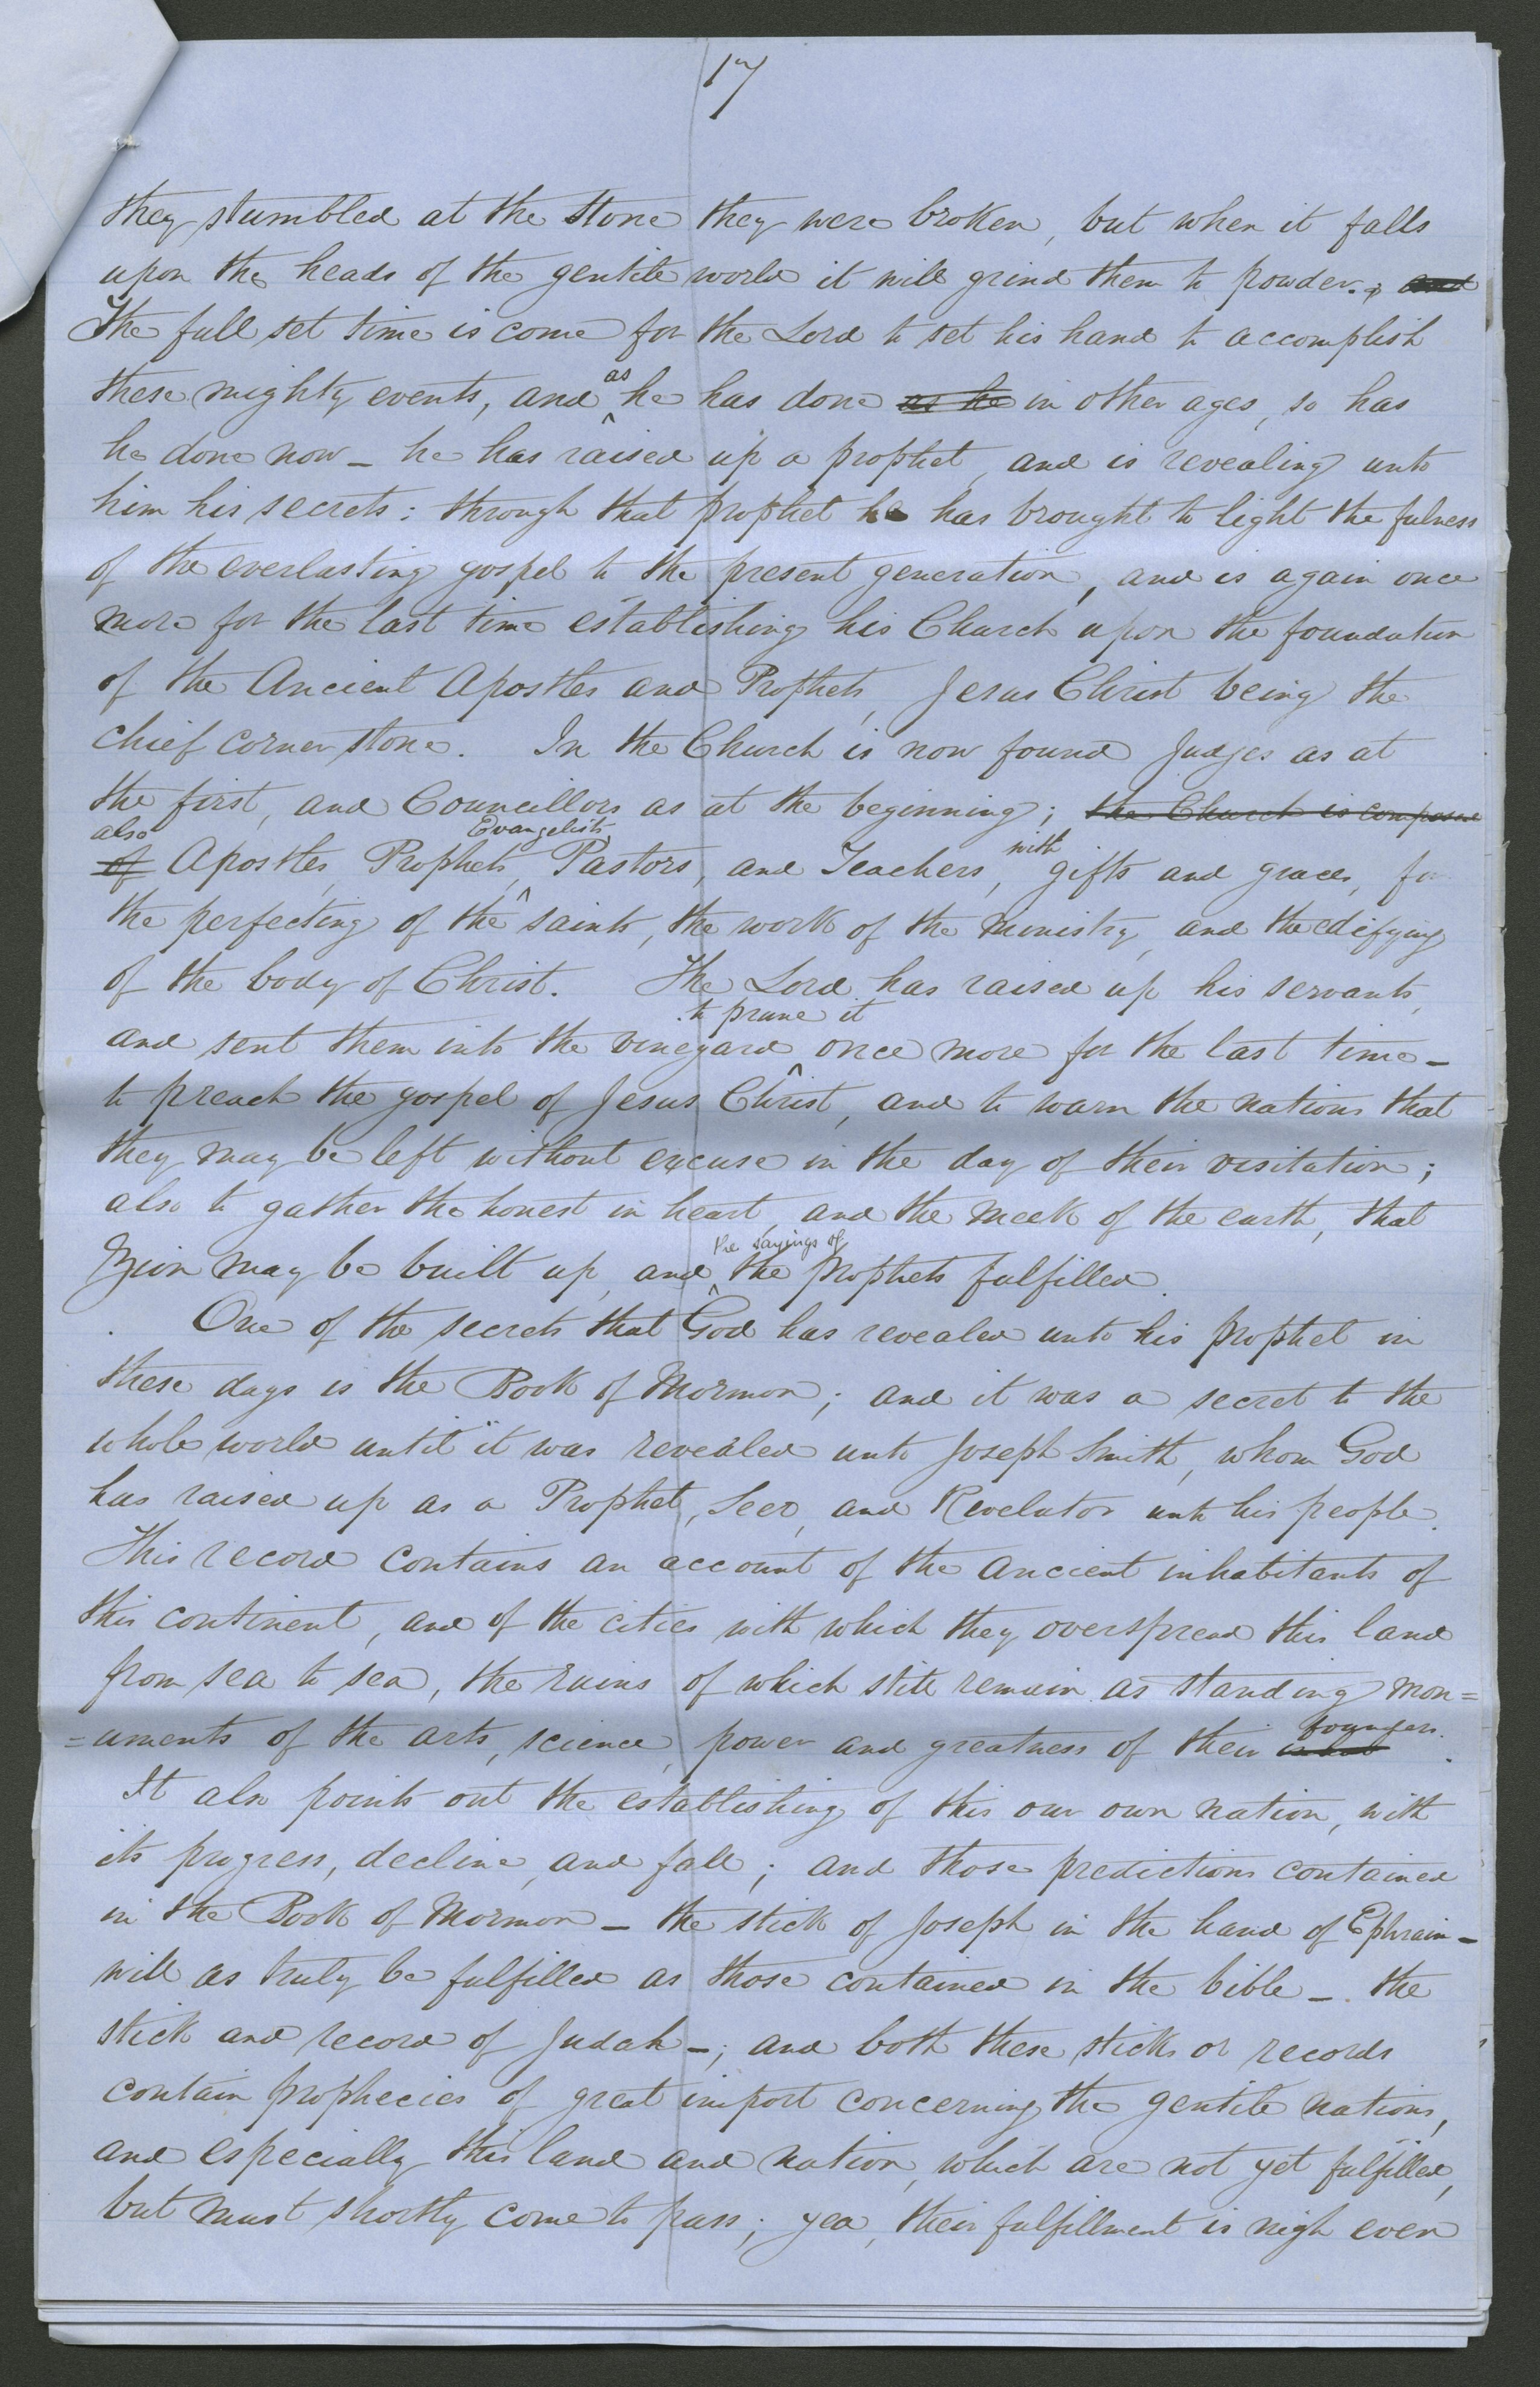 17
they stumbled at the stone they were broken, but when it falls
upon the heads of the gentile world it will grind them to powder.; and
The full set time is come for the Lord to set his hand to accomplish
these mighty events, and as he has done as he in other ages, so has
he done now – he has raised up a prophet, and is revealing unto
him his secrets: through that prophet he has brought to light the fulness
of the everlasting gospel to the present generation, and is again once
more for the last time establishing his Church upon the foundation
of the Ancient Apostles and Prophets, Jesus Christ being the
chief corner stone. In the Church is now found Judges as at
the first, and Councillors as at the beginning; the Church is composed
also of Apostles, Prophets, Evangelists, Pastors, and Teachers, with gifts and graces, for
the perfecting of the saints, the work of the ministry, and the edifying
of the body of Christ. The Lord has raised up his servants,
and sent them into the vineyard to prune it once more for the last time –
to preach the gospel of Jesus Christ, and to warn the nations that
they may be left without excuse in the day of their visitation;
also to gather the honest in heart, and the meek of the earth, that
Zion may be built up, and the sayings of the prophets fulfilled.
One of the secrets that God has revealed unto his prophet in
these days is the Book of Mormon; and it was a secret to the
whole world until it was revealed unto Joseph Smith, whom God
has raised up as a Prophet, Seer, and Revelator unto his people.
This record contains an account of the ancient inhabitants of
this continent, and of the cities with which they overspread this land
from sea to sea, the ruins of which still remain as standing mon=
=uments of the arts, science, power and greatness of their founders.
It also points out the establishing of this our own nation, with
its progress, decline, and fall; and those predictions contained
in the Book of Mormon – the stick of Joseph in the hand of Ephraim –
will as truly be fulfilled as those contained in the bible – the
stick and record of Judah –; and both these sticks or records
contain prophecies of great import concerning the gentile nations,
and especially this land and nation, which are not yet fulfilled,
but must shortly come to pass; yea, their fulfillment is nigh even